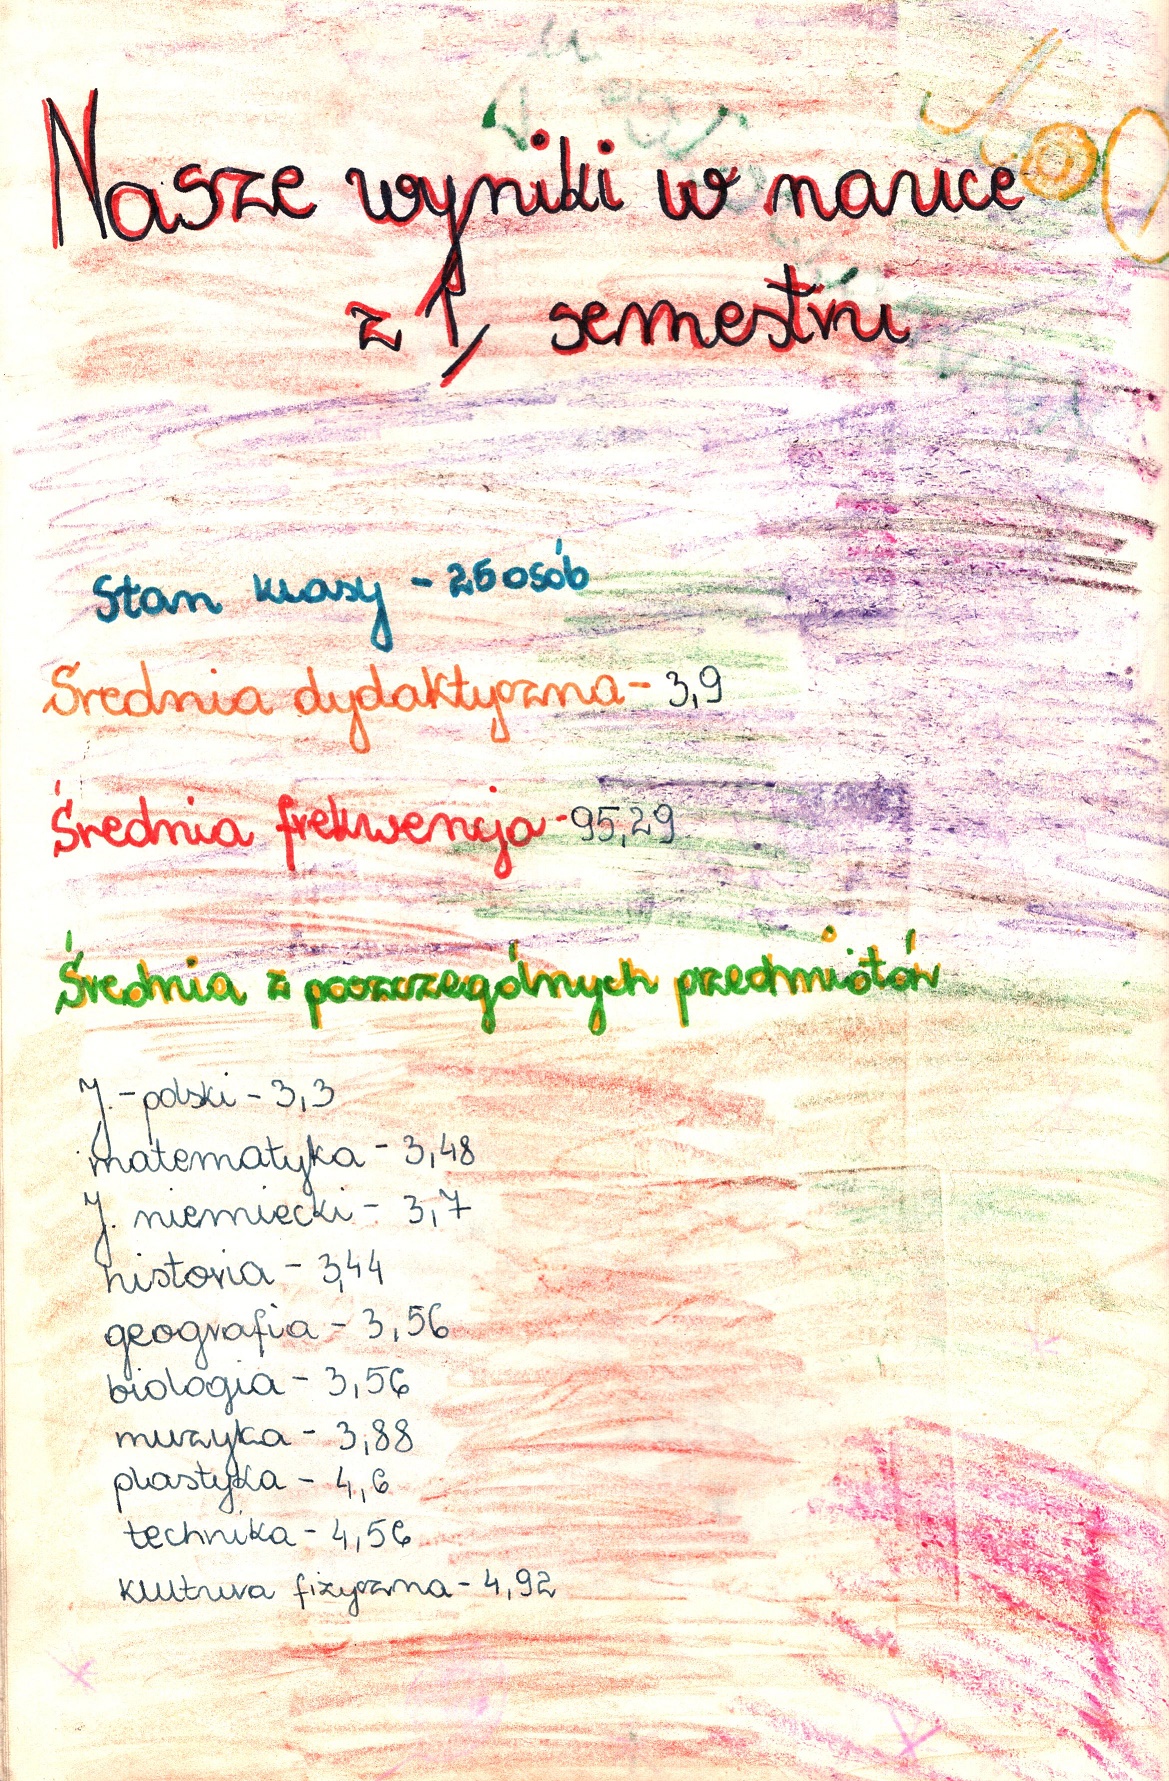 Nasze wyniki w nauce
z 1, semestru
Stan klasy - 25 osób
Średnia dydaktyczna - 3,9
Średnia frekwencja - 95,29
Średnia z poszczególnych przedmiotów
J. - polski - 3,3
matematyka - 3,48
J. niemiecki - 3,7
historia - 3,44
geografia - 3,56
biologia - 3,56
muzyka - 3,88
plastyka - 4,6
technika - 4,56
kultura fizyczna - 4,92